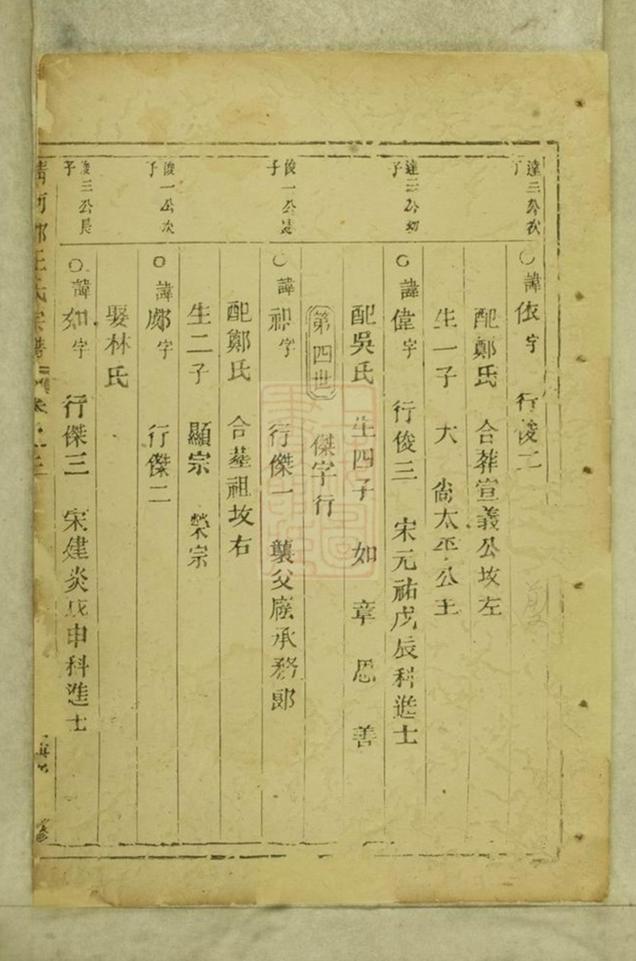 達三公次子
○諱依字 行俊二
配鄭氏 合葬宣義公坟左
生一子 大 尙太平公主
達三公幼子
○諱偉字 行俊三 宋元祐戊辰科進士
配吳氏 生四子 如 章 思 善
第四世 傑字行
俊一公長子
○諱 字 行傑一 襲父廕承務郎
配鄭氏 合塟祖坟右
生二子 顯宗 榮宗
俊一公次子
○諱 字 行傑二
娶林氏
俊三公長子
○諱如字 行傑三 宋建炎戊申科進士
清河郡 氏宗譜
修